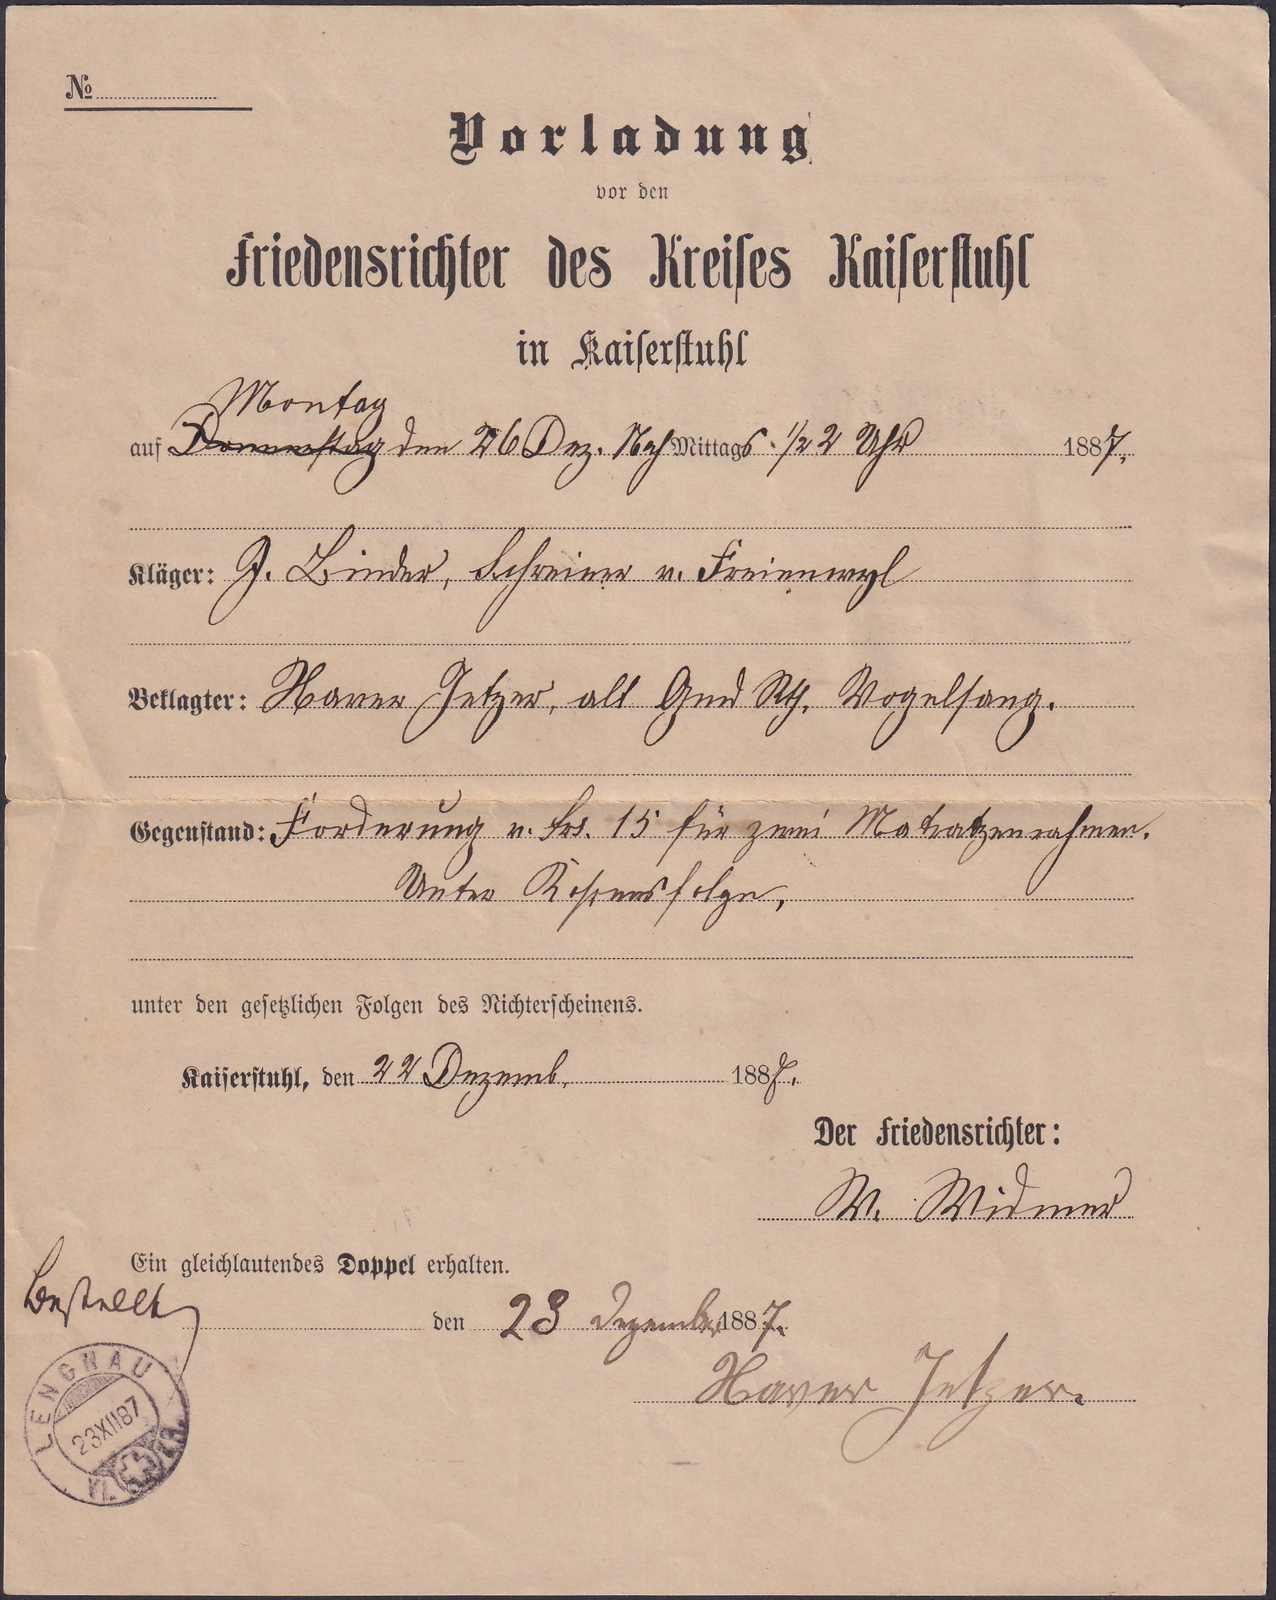 №
Vorladung
vor den
Friedensrichter des Kreises Kaiserstuhl
in Kaiserstuhl
Montag
auf Donnerstag den 26 Dez. Nch Mittags. ½ 2 Uhr 1887.
Kläger: J. Binder, Schreiner v. Freienwyl
Beklagter: Xaver Jetzer, alt Gmd Rth. Vogelsang.
Gegenstand: Forderung v. Frs. 15 für zwei Matratzenrahmen.
Unter Kostensfolge,
unter den gesetzlichen Folgen des Nichterscheinens.
Kaiserstuhl, den 22 Dezemb. 1887.
Der Friedensrichter:
W. Widmer
Ein gleichlautendes Doppel erhalten.
Bestellt
den 23 Dezember 1887.
Xaver Jetzer.
LENGNAU
23 XII 87
VI